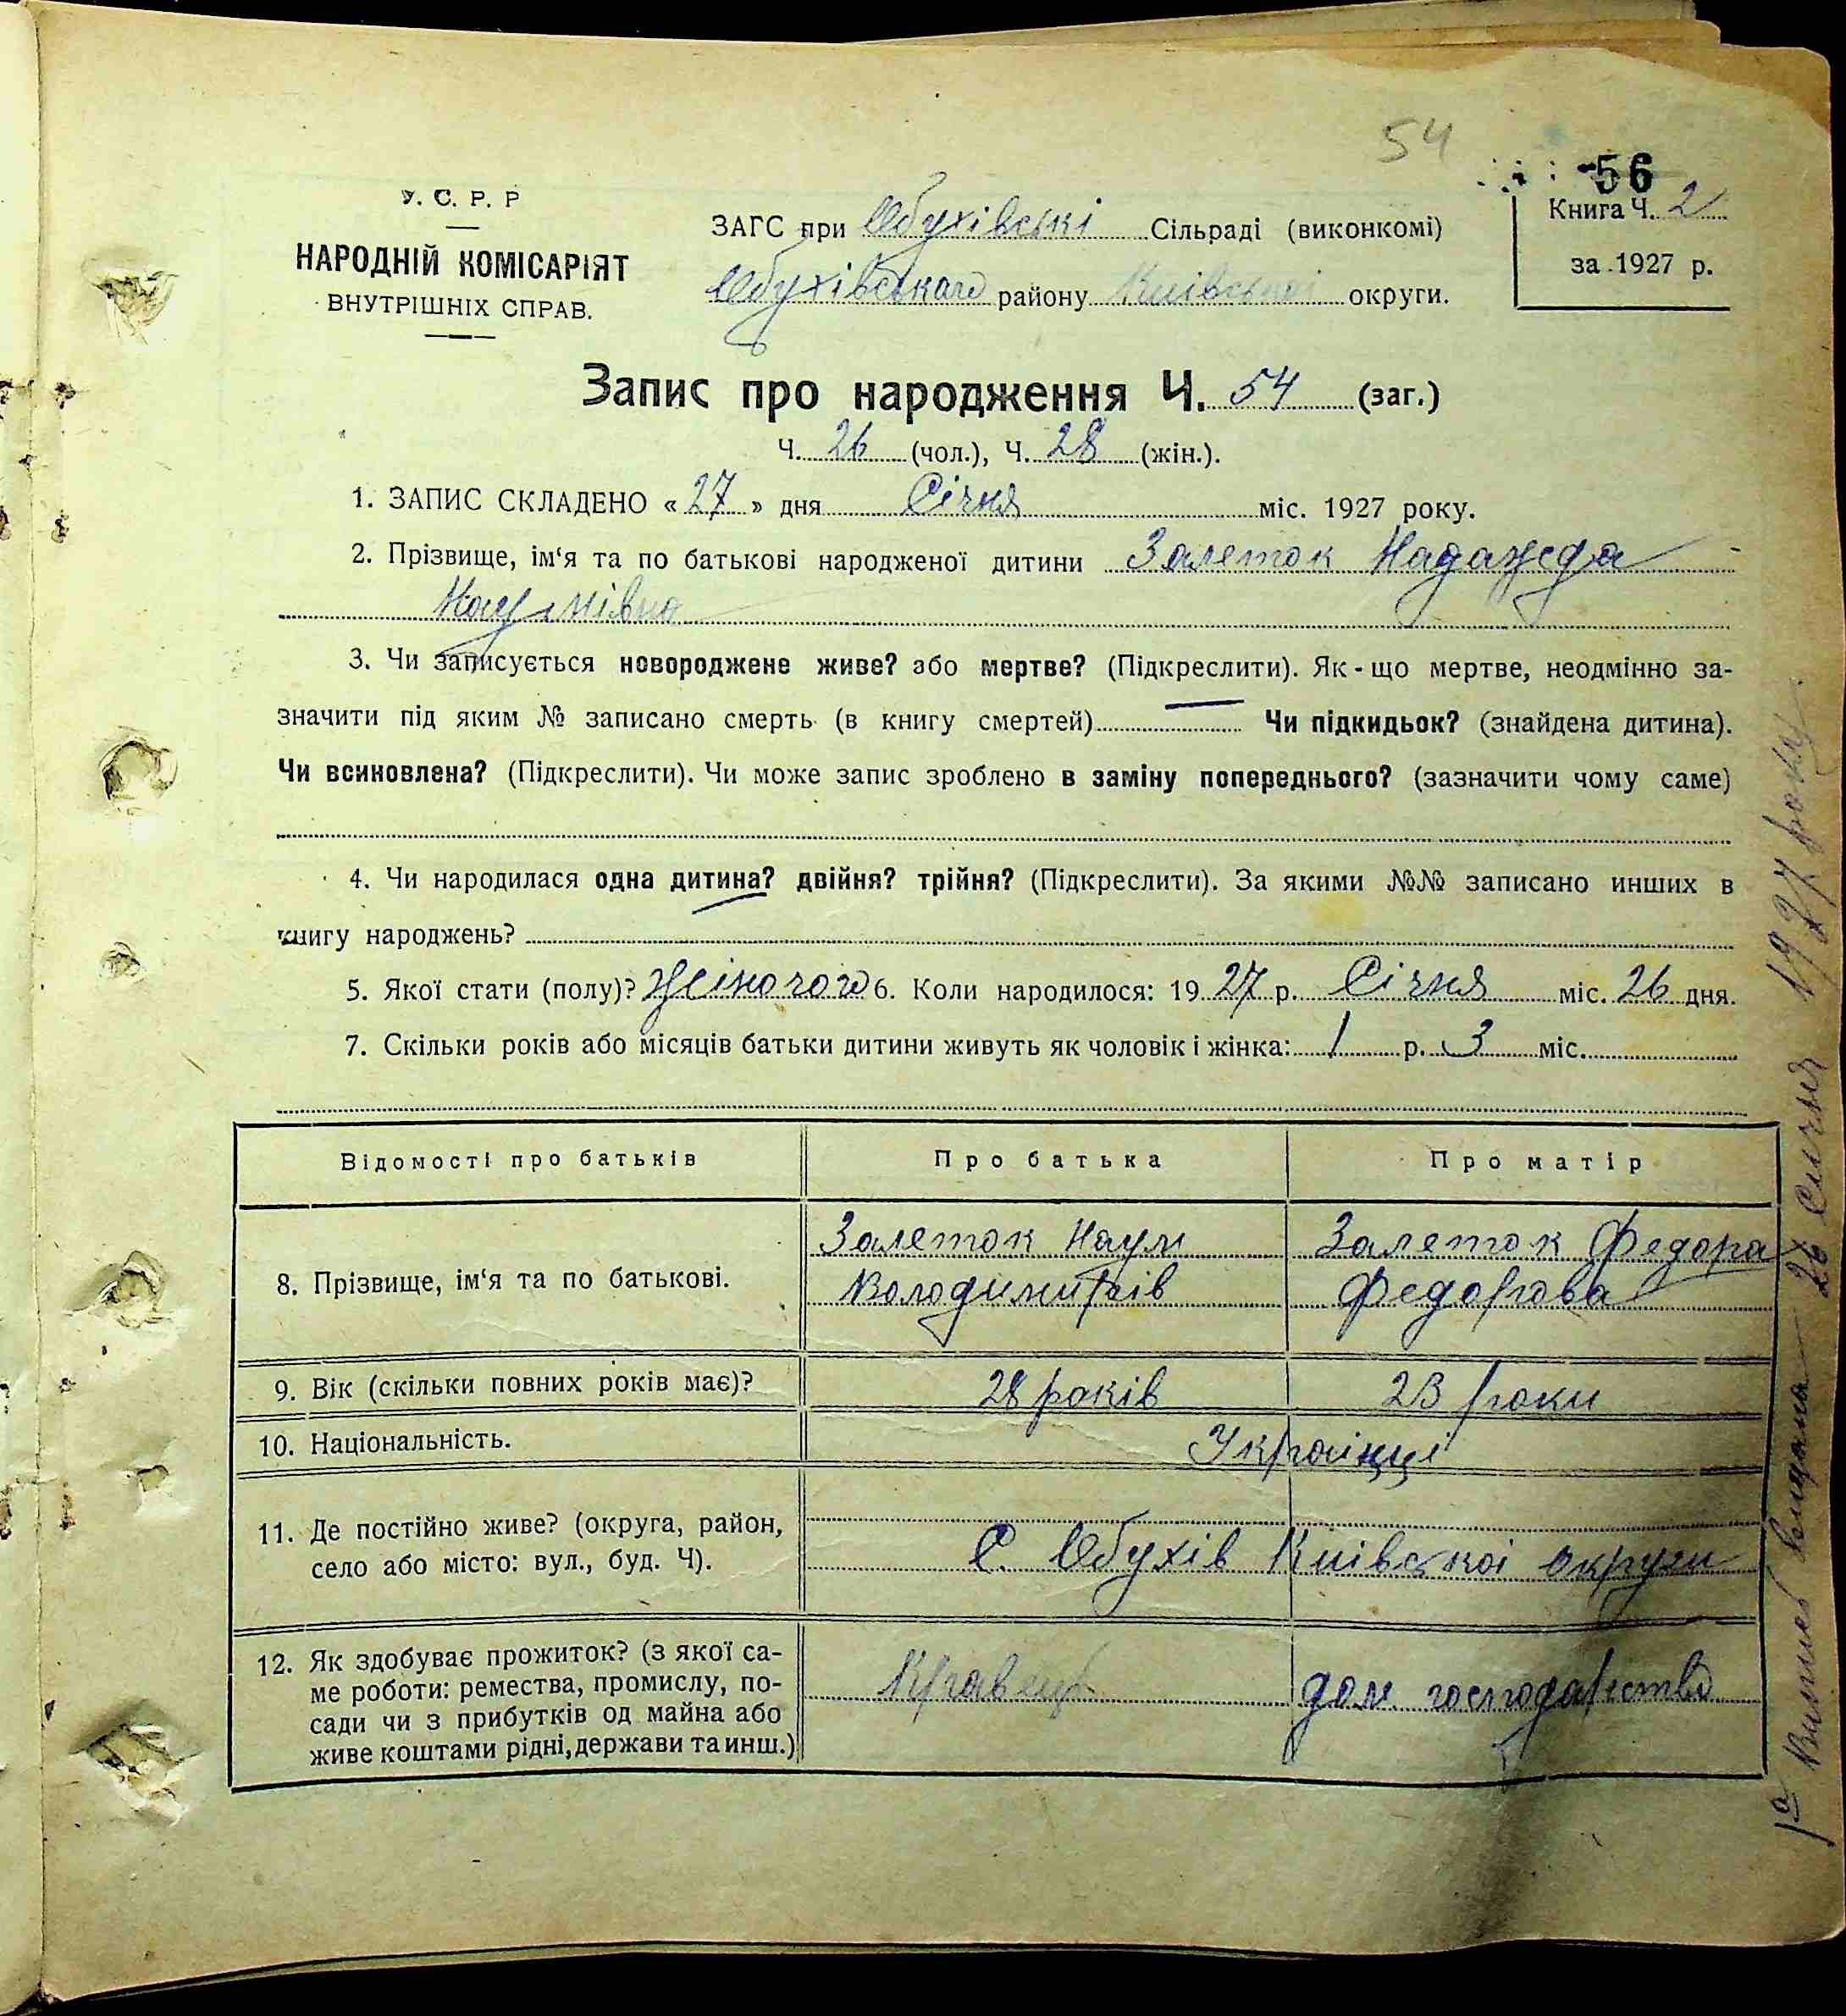 54
56
У. С. Р. Р
НАРОДНІЙ КОМІСАРІЯТ
ВНУТРІШНІХ СПРАВ.
ЗАГС при Обухівські Сільраді (виконкомі)
Обухівського району Київської округи.
Книга Ч. 2
за 1927 р.
Запис про народження Ч. 54 (заг.)
Ч. 26 (чол.), Ч. 28 (жін.).
1. ЗАПИС СКЛАДЕНО «27» дня Січня міс. 1927 року.
2. Прізвище, ім‘я та по батькові народженої дитини Залеток Надажда
Наумівна
3. Чи записується новороджене живе? або мертве? (Підкреслити). Як-що мертве, неодмінно за-
значити під яким № записано смерть (в книгу смертей) — Чи підкидьок? (знайдена дитина).
Чи всиновлена? (Підкреслити). Чи може запис зроблено в заміну попереднього? (зазначити чому саме)
4. Чи народилася одна дитина? двійня? трійня? (Підкреслити). За якими №№ записано инших в
книгу народжень?
5. Якої стати (полу)? Жіночого 6. Коли народилося: 1927 р. Січня міс. 26 дня.
7. Скільки років або місяців батьки дитини живуть як чоловік і жінка: 1 р. 3 міс.
Відомості про батьків Про батька Про матір
8. Прізвище, ім‘я та по батькові.
Залеток Наум
Володимирів
Залеток Федора
Федорова
9. Вік (скільки повних років має)? 28 років 23 роки
10. Національність. Українці
11. Де постійно живе? (округа, район,
село або місто: вул., буд. Ч).
С. Обухів Київської округи
12. Як здобуває прожиток? (з якої са-
ме роботи: ремества, промислу, по-
сади чи з прибутків од майна або
живе коштами рідні, держави та инш.)
Кравець
дом господарство
Виписъ видана 26 Січня 1927 року